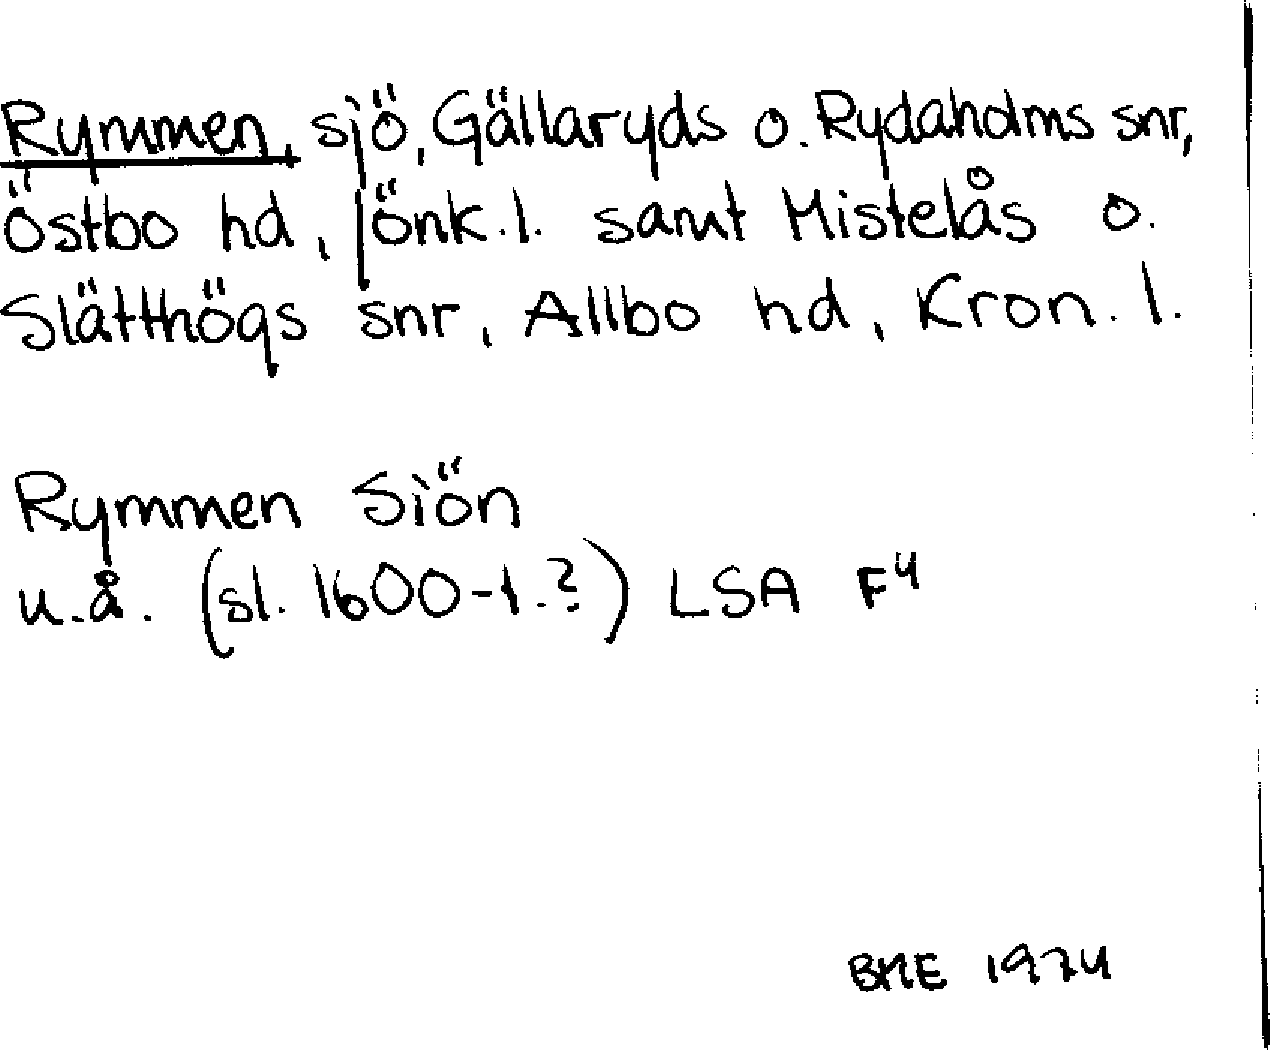 Rymmen, sjö, Gällaryds o. Rydaholms snr,
Östbo hd, Jönk.l. samt Mistelås o.
Slätthögs snr, Allbo hd, Kron. l.
Rymmen Siön
u.å. (sl. 1600-t.?) LSA F4
BME 1974